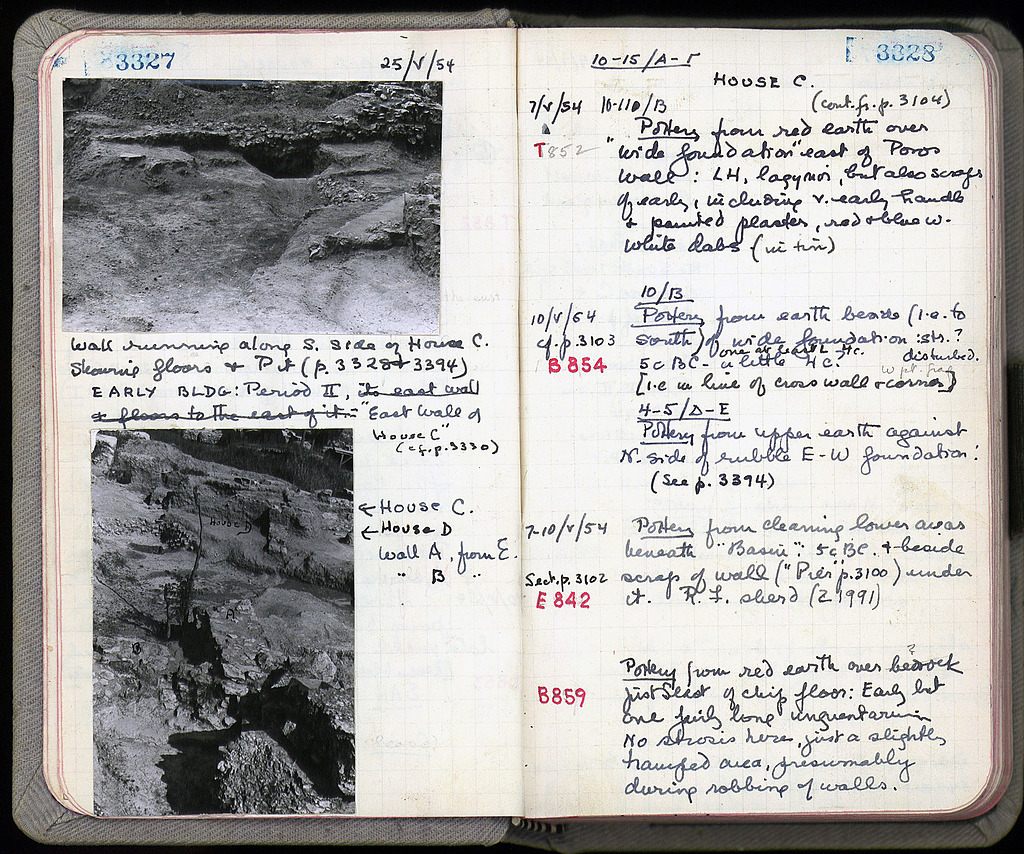 3327
25/V/54
Wall running along S. side of House C.
Showing floors + Pit (p. 3328 + 3394)
EARLY BLDG: Period II, its east wall
+ floors to the east of it: "East Wall of
House C"
(cf. p. 3330)
House D
A
B
← House C.
← House D
Wall A, from E.
" B "
3328
10-15/A-Γ
HOUSE C.
(cont. fr. p. 3104)
7/V/54 10-110/B
Pottery from red earth over
T852 "wide foundation" east of Poros
wall: LH, lagynoi, but also scraps
of early, including v. early handle
+ painted plaster, red + blue w.
white dabs (in tin)
10/B
10/V/54 Pottery from earth beside (i.e. to
cf. p. 3103 South) of wide foundation: str.?
one at least L. Hc. disturbed.
B854 5c BC - a little HC.
w pt. frag
[i.e in line of cross wall + corner]
4-5/Δ-E
Pottery from upper earth against
N. side of rubble E-W foundation:
(See p. 3394)
7-10/V/54 Pottery from cleaning lower areas
beneath "Basin": 5c BC. + beside
Sect. p. 3102 scrap of wall ("Pier" p. 3100) under
E842 it. R.F. sherd (Z 1991)
?
Pottery from red earth over bedrock
B859 just S east of chip floor: Early but
one fairly long unguentarium
No strosis here, just a slightly
tramped area, presumably
during robbing of walls.